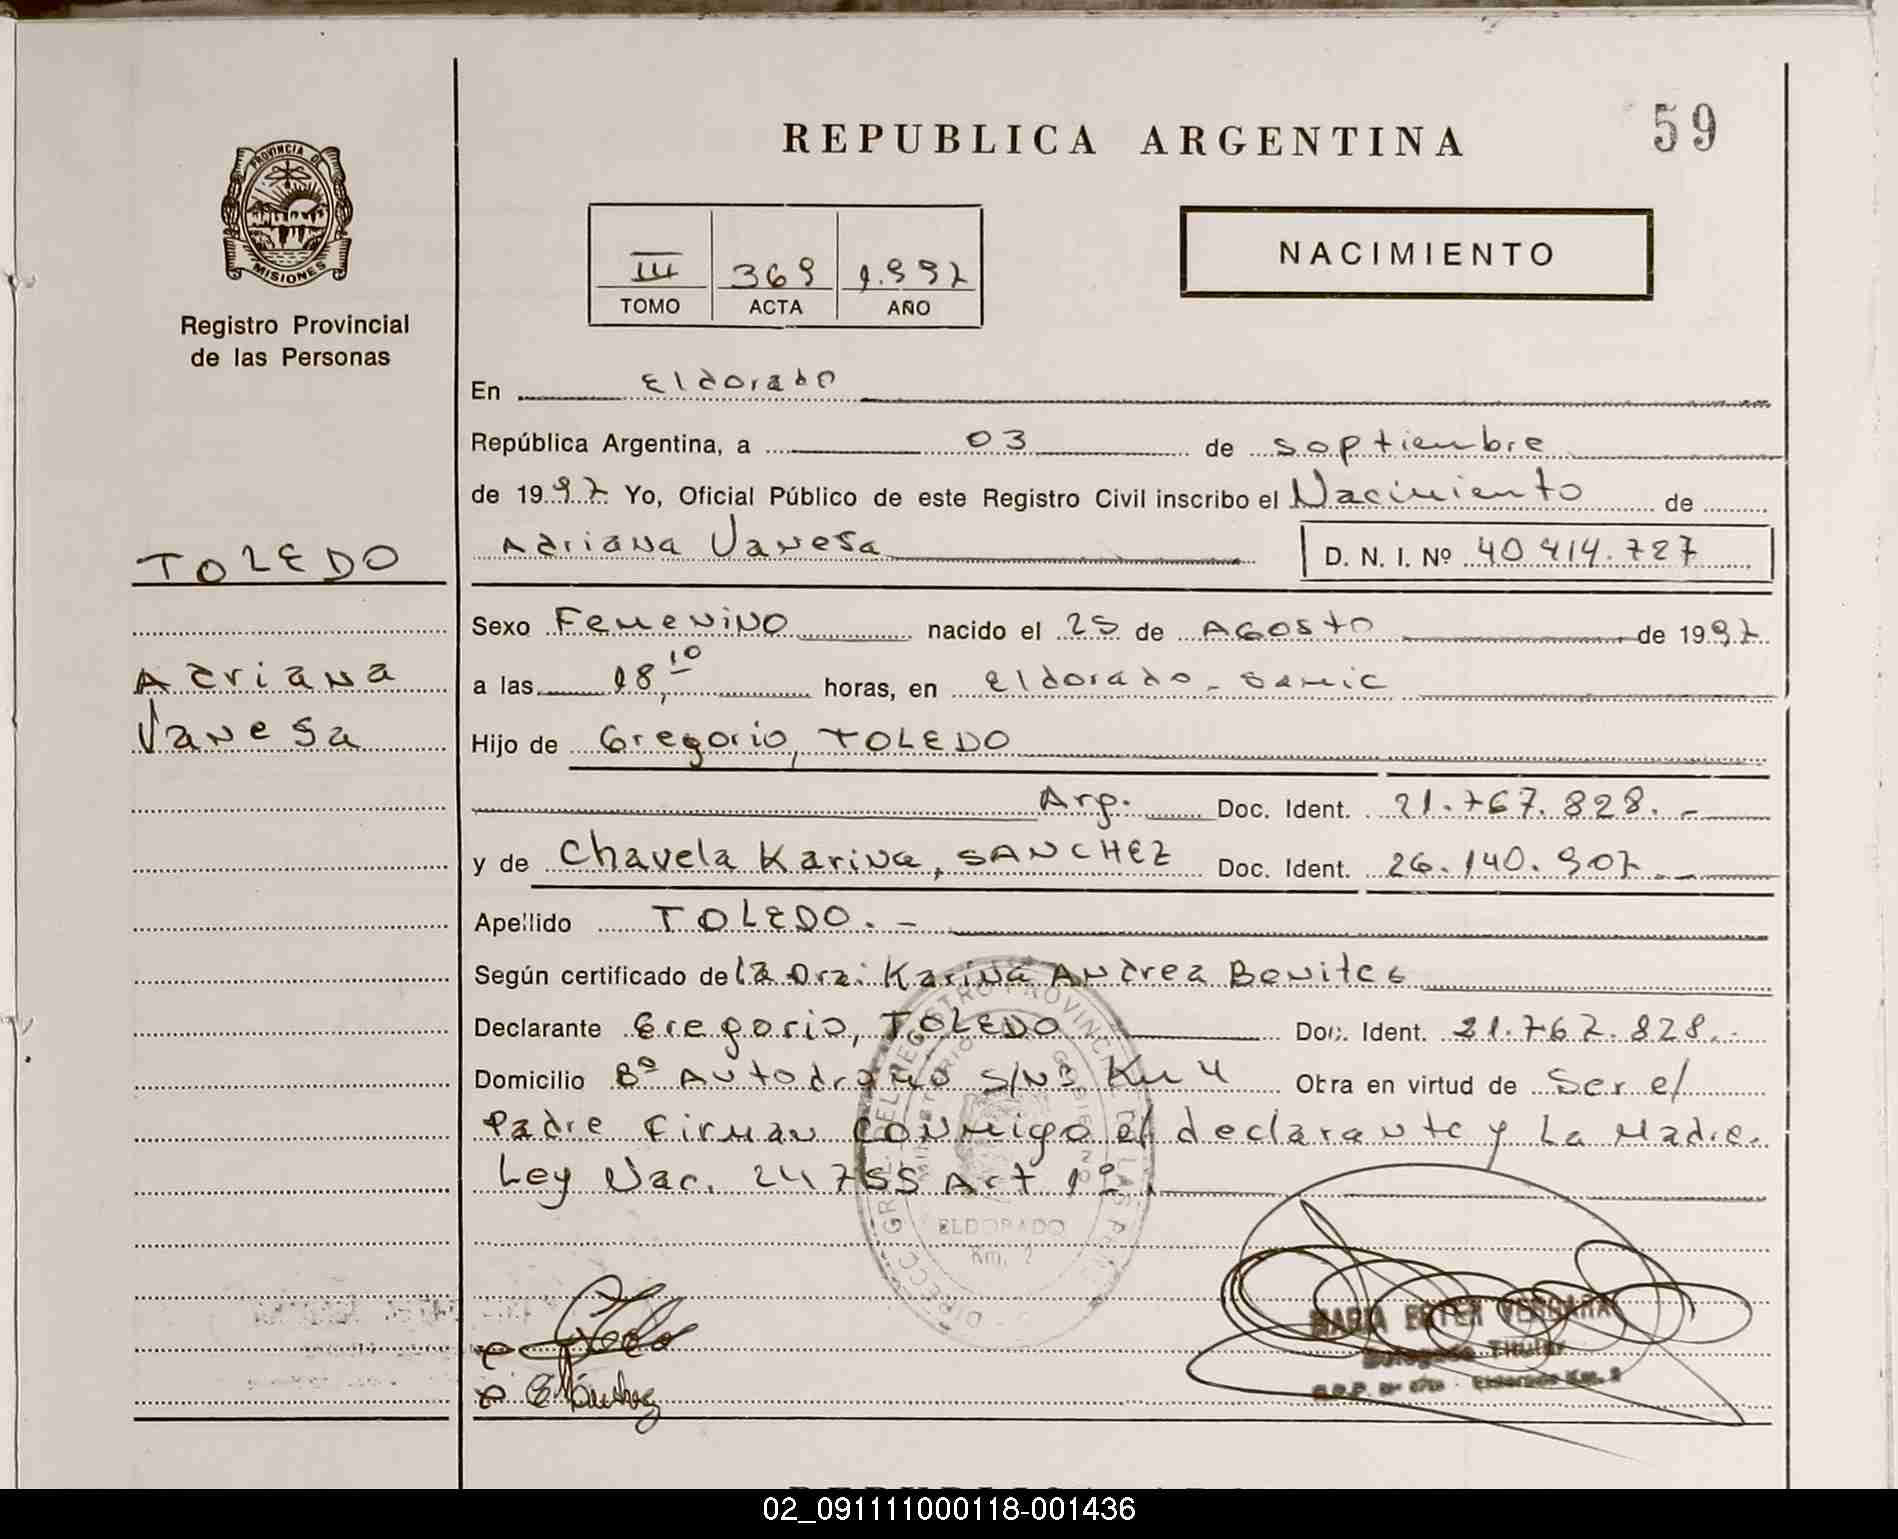 REPUBLICA ARGENTINA
59
PROVINCIA DE
MISIONES
Registro Provincial
de las Personas
III 369 1.997
TOMO ACTA AÑO
NACIMIENTO
En Eldorado
República Argentina, a 03 de septiembre
de 1997 Yo, Oficial Público de este Registro Civil inscribo el Nacimiento de
Adriana Vanesa D. N. I. Nº 40 414.727
TOLEDO
Adriana
Vanesa
Sexo Femenino nacido el 25 de Agosto de 1997
a las 18,10 horas, en Eldorado - Samic
Hijo de Gregorio, TOLEDO
Arg. Doc. Ident. 21.767.828.-
y de Chavela Karina, SANCHEZ Doc. Ident. 26.140.907.-
Apellido TOLEDO.-
Según certificado de la Dra. Karina Andrea Benites
Declarante Gregorio, TOLEDO Doc. Ident. 21.767.828.-
Domicilio Bº Autodromo S/Nº Km 4 Obra en virtud de Ser el
Padre Firman conmigo el declarante y La Madre.
Ley Nac. 24755 Art 1º.
DIRECC. GRAL. DEL REGISTRO PROVINCIAL DE LAS
MINISTERIO DE GOBIERNO
ELDORADO
Km. 2
MARIA ESTER VERGARA
Delegada Titular
Eldorado Km. 2
02_091111000118-001436